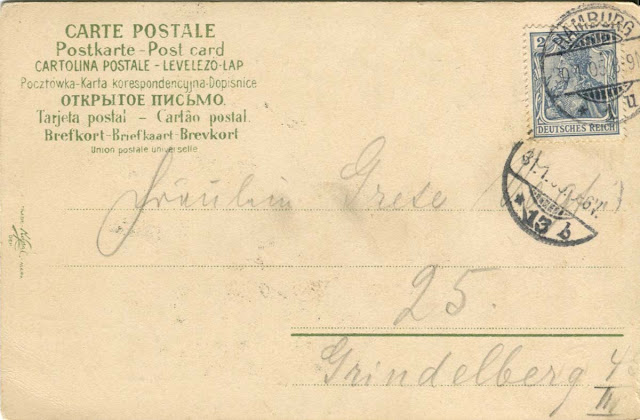 CARTE POSTALE
Postkarte - Post card
CARTOLINA POSTALE - LEVELEZŐ-LAP
Pocztówka-Karta korespondencyjna-Dopisnice
ОТКРЫТОЕ ПИСЬМО.
Tarjeta postal - Cartão postal.
Brefkort-Briefkaart-Brevkort
Union postale universelle
HAMBURG
2
DEUTSCHES REICH
* 13 b
Fräulein Grete
25.
Grindelberg 4
III